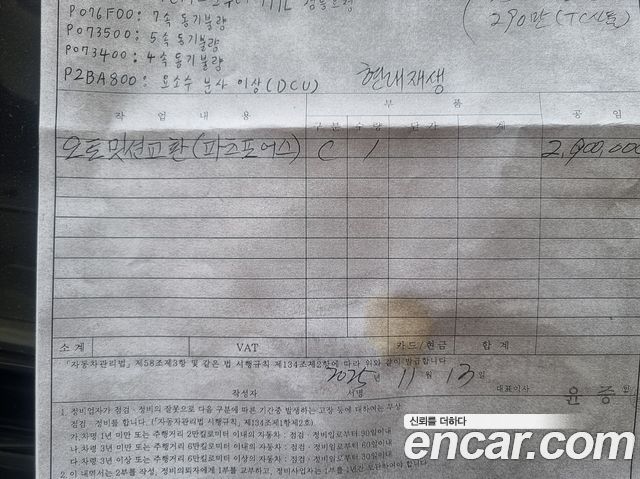 P076F00: 7속 동기불량
290만 (TC신품)
P073500: 5속 동기불량
P073400: 4속 동기불량
P2BA800: 요소수 분사 이상 (DCU)
현대재생
작 업 내 용 부 품 공 임
구 분 수 량 단 가 계
오토밋션교환(파츠포어스) C 1 2,900,000
소 계 VAT 카드/현금 합 계
「자동차관리법」제58조제3항 및 같은 법 시행규칙 제134조제2항에 따라 위와 같이 발급합니다
2025년 11월 13일
작성자 서명 대표이사 윤종
1. 정비업자가 점검·정비의 잘못으로 다음 구분에 따른 기간중 발생하는 고장 등에 대하여는 무상
점검·정비를 합니다.(「자동차관리법 시행규칙」제134조제1항제2호)
가.차령 1년 미만 또는 주행거리 2만킬로미터 이내의 자동차: 점검·정비일로부터 90일이내
나.차령 3년 미만 또는 주행거리 6만킬로미터 이내의 자동차: 점검·정비일로부터 60일이내
다.차령 3년 이상 또는 주행거리 6만킬로미터 이상의 자동차: 점검·정비일로부터 30일이내
2. 이 내역서는 2부를 작성, 정비의뢰자에게 1부를 교부하고, 정비사업자는 1부를 1년간 보관하여야 합니다.
신뢰를 더하다
encar.com